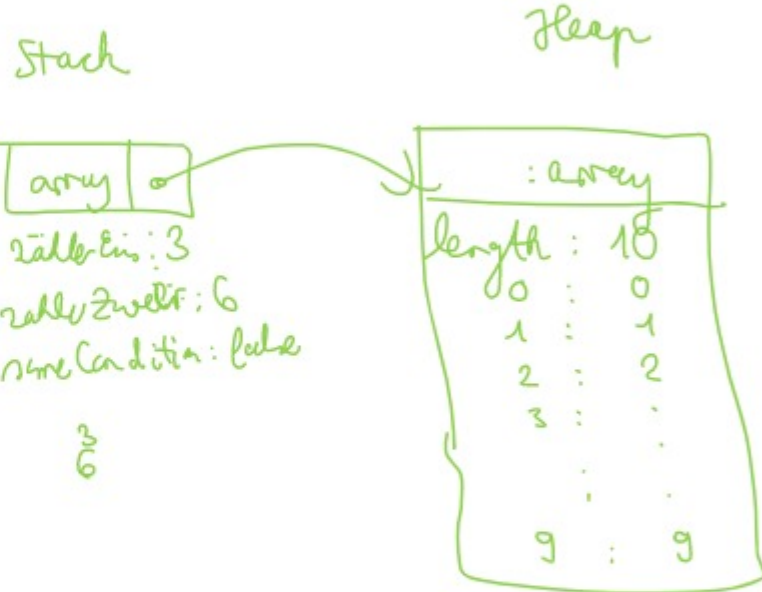 Stack
Heap
array
: array
zählerEins : 3
zählerZwei : 6
someCondition : false
3
6
length : 10
0 : 0
1 : 1
2 : 2
3 : .
.
. .
9 : 9